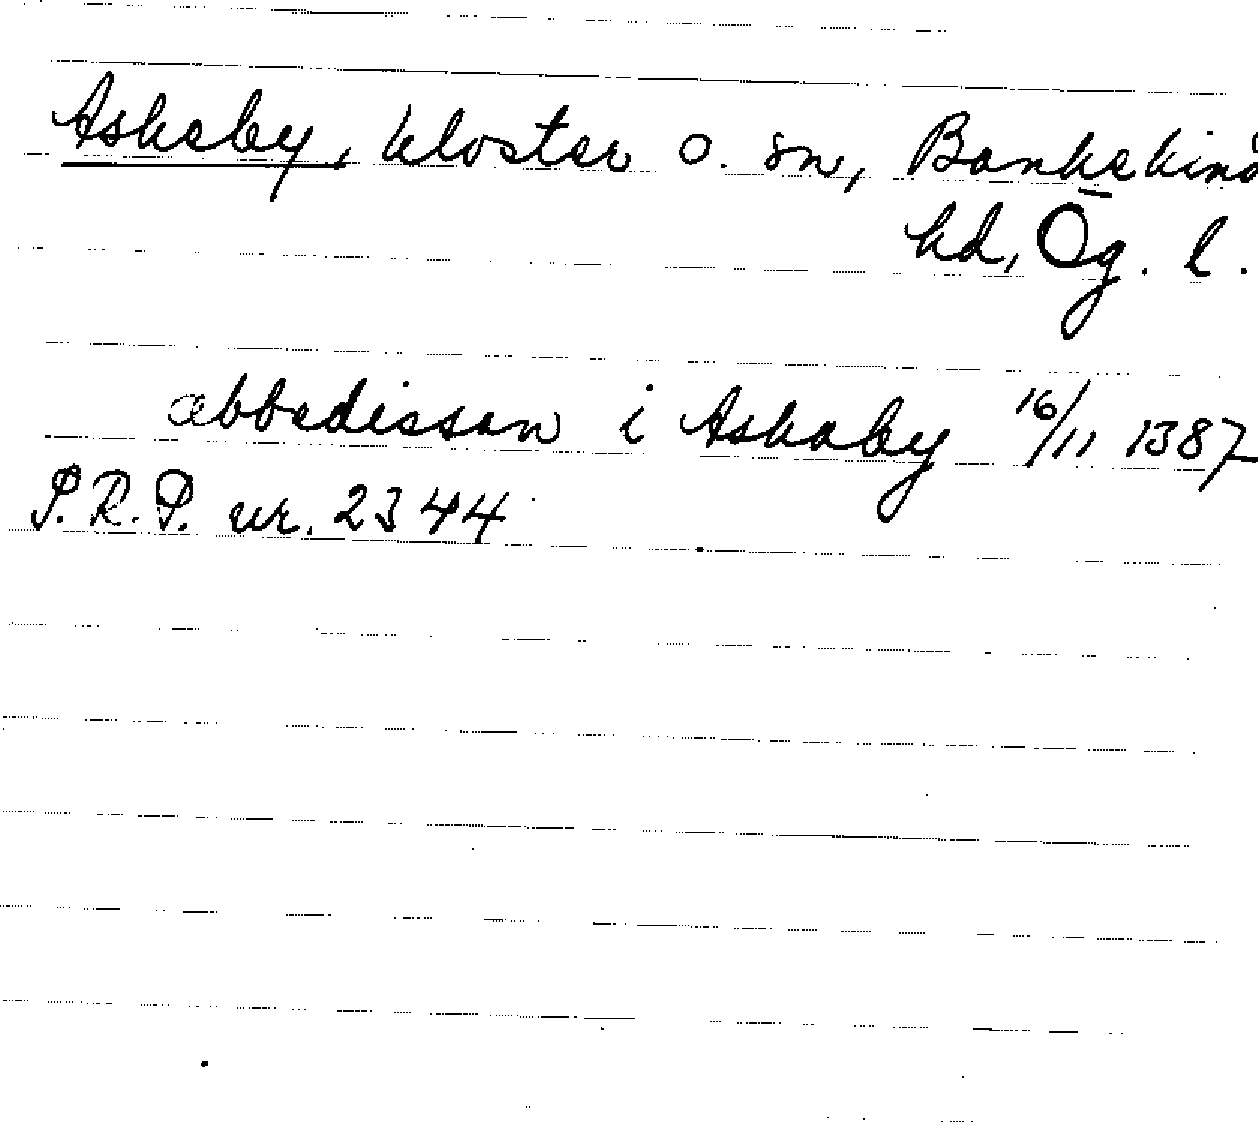 Askeby, kloster o. sn, Bankekind
hd, Ög. l.
abbedissan i Askaby 16/11 1387
S.R.P. nr. 2344